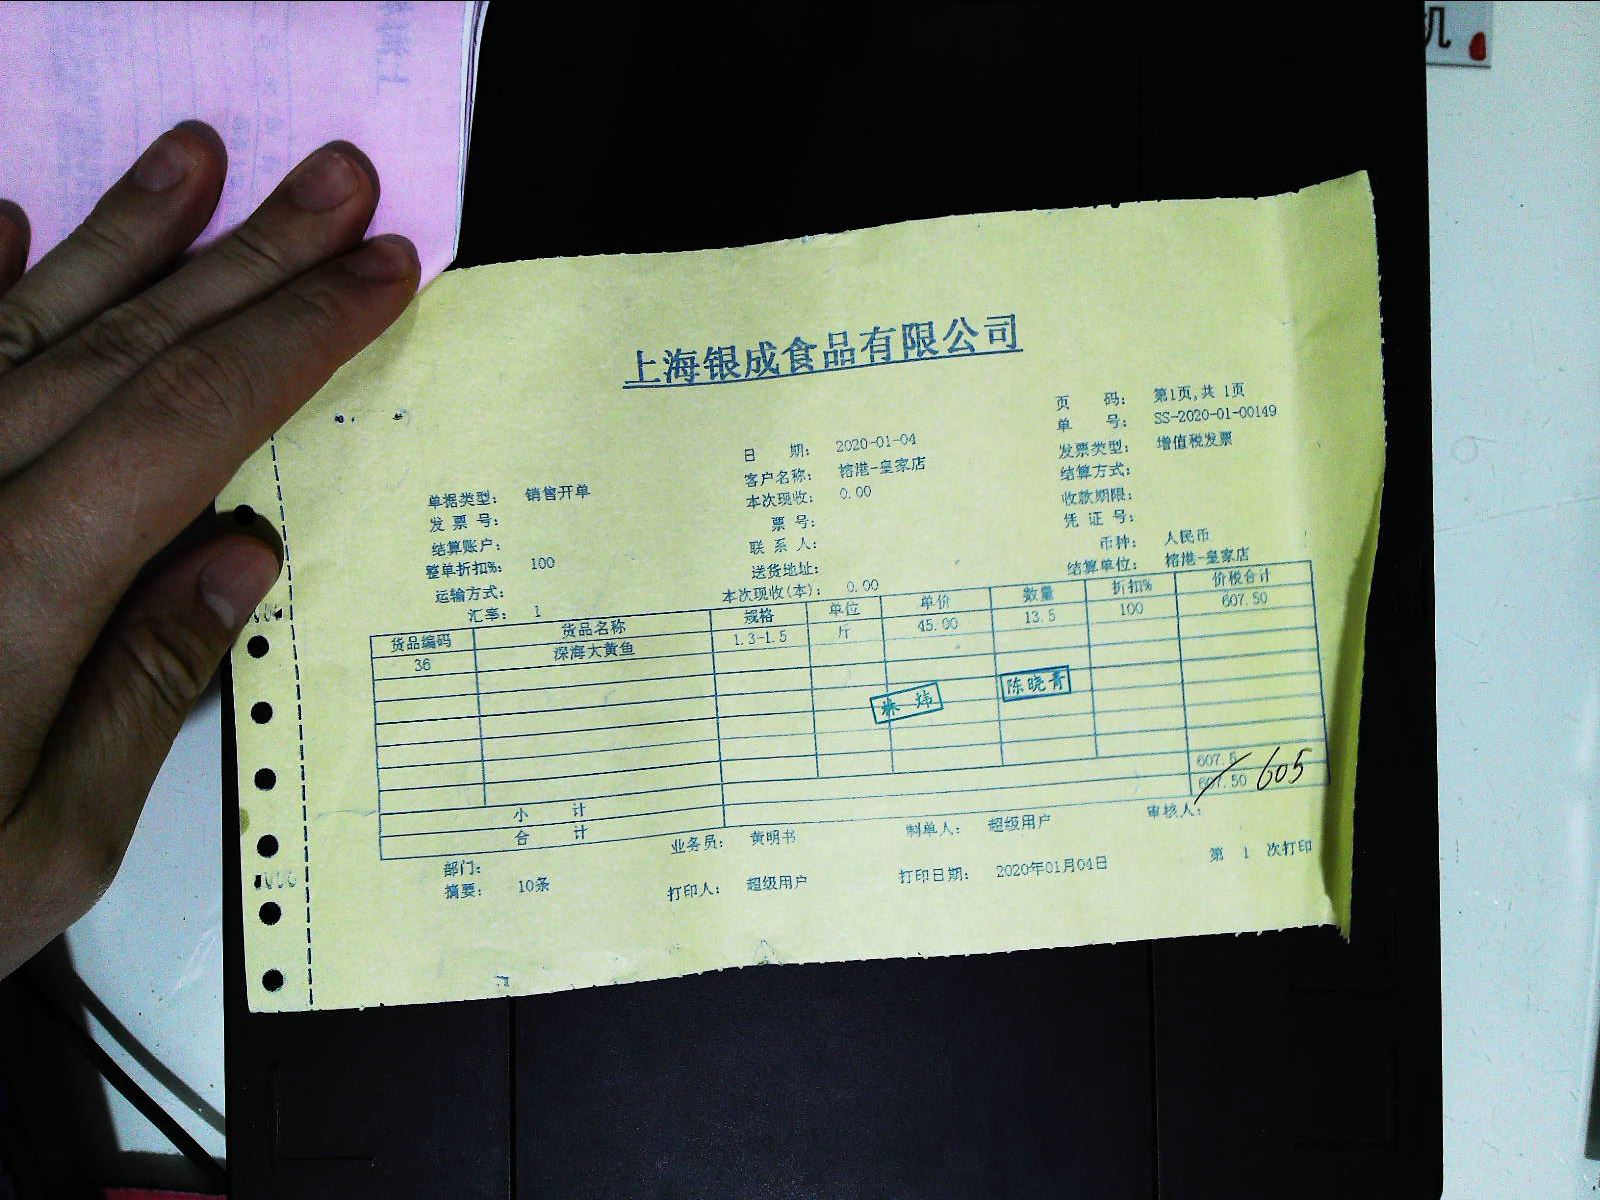 机
上海银成食品有限公司
页 码: 第1页,共 1页
单 号: SS-2020-01-00149
日 期: 2020-01-04
发票类型: 增值税发票
客户名称: 榕港-皇家店
结算方式:
单据类型: 销售开单
本次现收: 0.00
收款期限:
发 票 号:
票 号:
凭 证 号:
结算账户:
联 系 人:
币种: 人民币
整单折扣%: 100
送货地址:
结算单位: 榕港-皇家店
运输方式:
本次现收(本): 0.00
汇率: 1
货品编码 货品名称 规格 单位 单价 数量 折扣% 价税合计
36 深海大黄鱼 1.3-1.5 斤 45.00 13.5 100 607.50
陈晓青
林 炜
小 计 607.5
合 计 607.50 605
部门: 业务员: 黄明书 制单人: 超级用户 审核人:
摘要: 10条 打印人: 超级用户 打印日期: 2020年01月04日 第 1 次打印